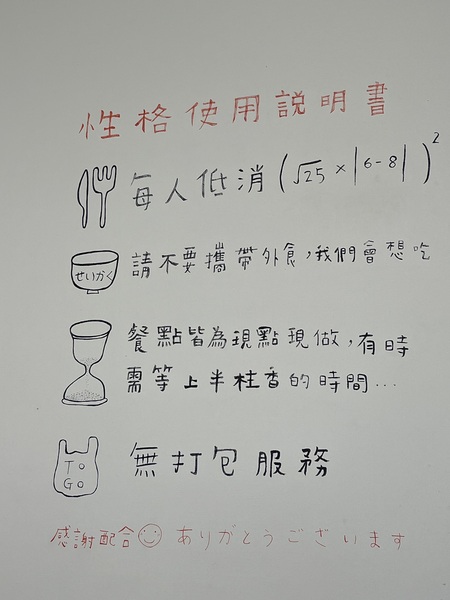 性格使用說明書
每人低消(√25×|6-8|)²
せいかく
請不要攜帶外食,我們會想吃
餐點皆為現點現做,有時
需等上半柱香的時間...
TO
GO
無打包服務
感謝配合 ありがとうございます